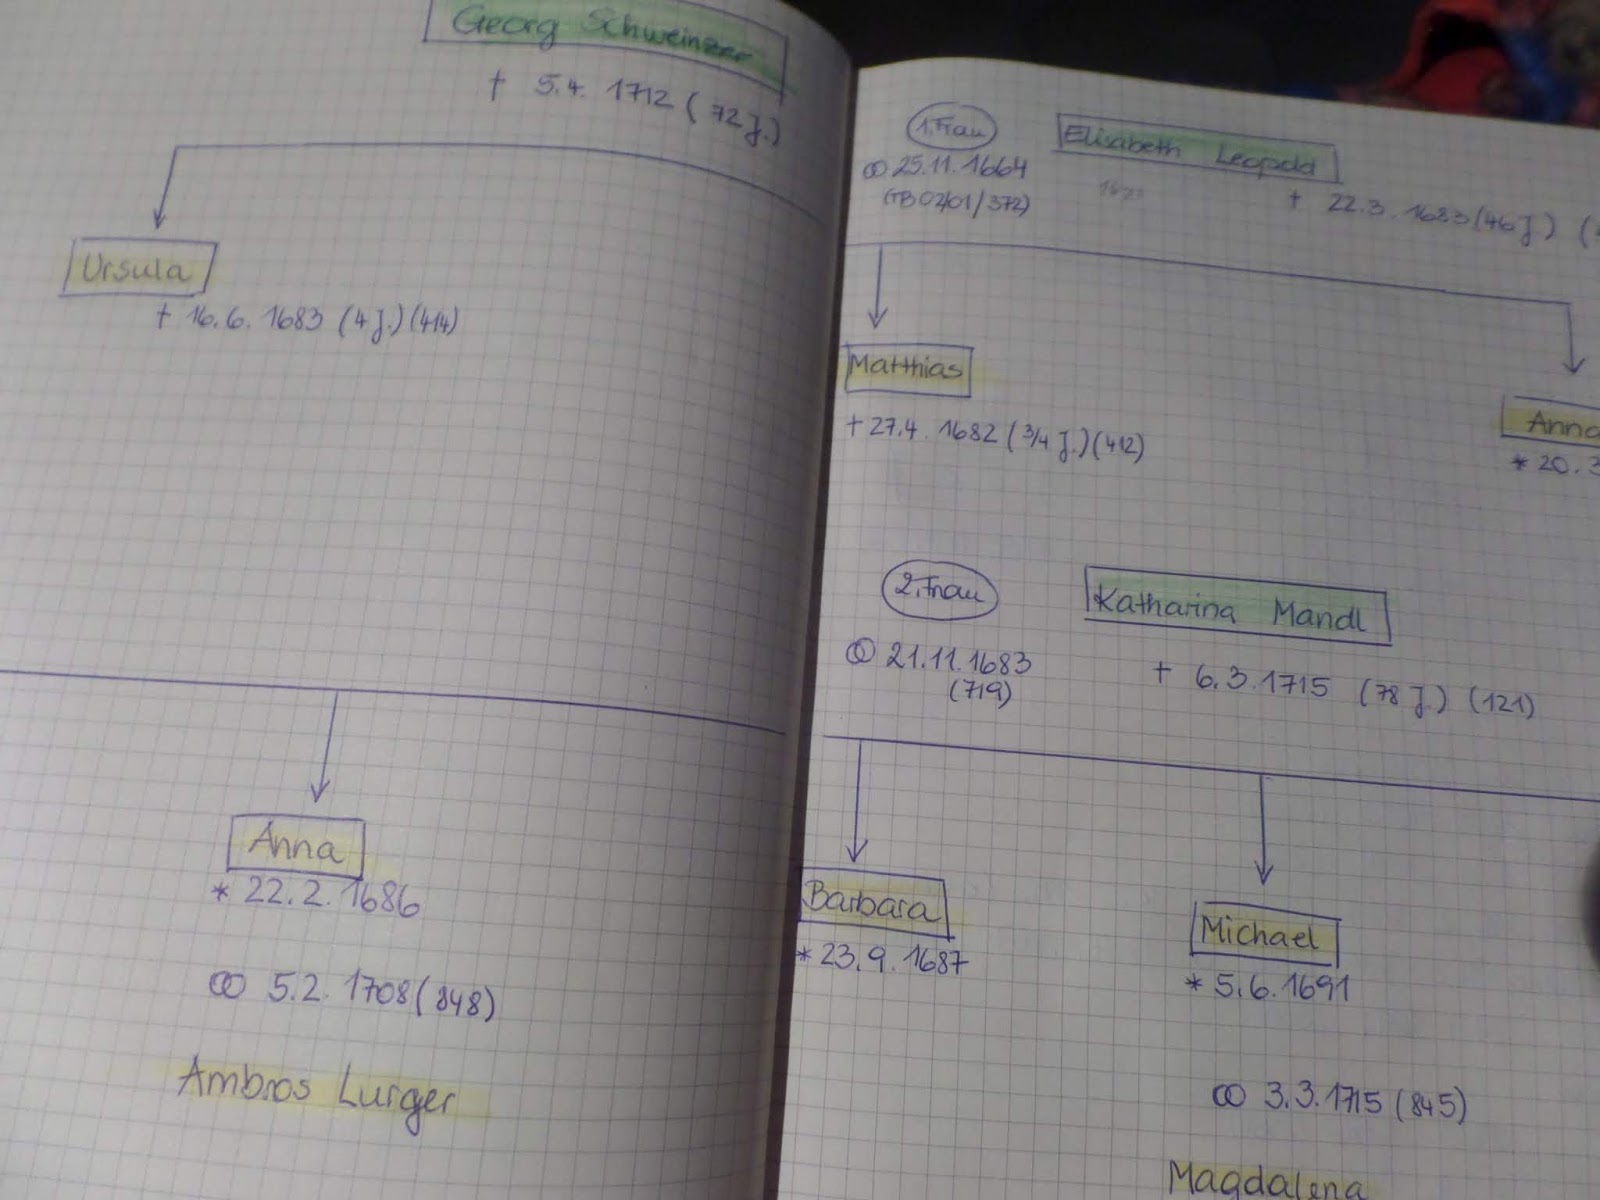 Georg Schweinzer
† 5.4. 1712 (72 J.)
Ursula
† 16.6. 1683 (4 J.) (414)
Anna
* 22.2. 1686
∞ 5.2. 1708 (848)
Ambros Lurger
1. Frau
Elisabeth Leopold
∞ 25.11.1664
(TB 02/01/372)
† 22.3.1683 (46 J.) (
Matthias
† 27.4. 1682 (3/4 J.) (412)
Anna
* 20.3
2. Frau
Katharina Mandl
∞ 21.11.1683
(719)
† 6.3.1715 (78 J.) (121)
Barbara
* 23.9.1687
Michael
* 5.6.1691
∞ 3.3.1715 (845)
Magdalena